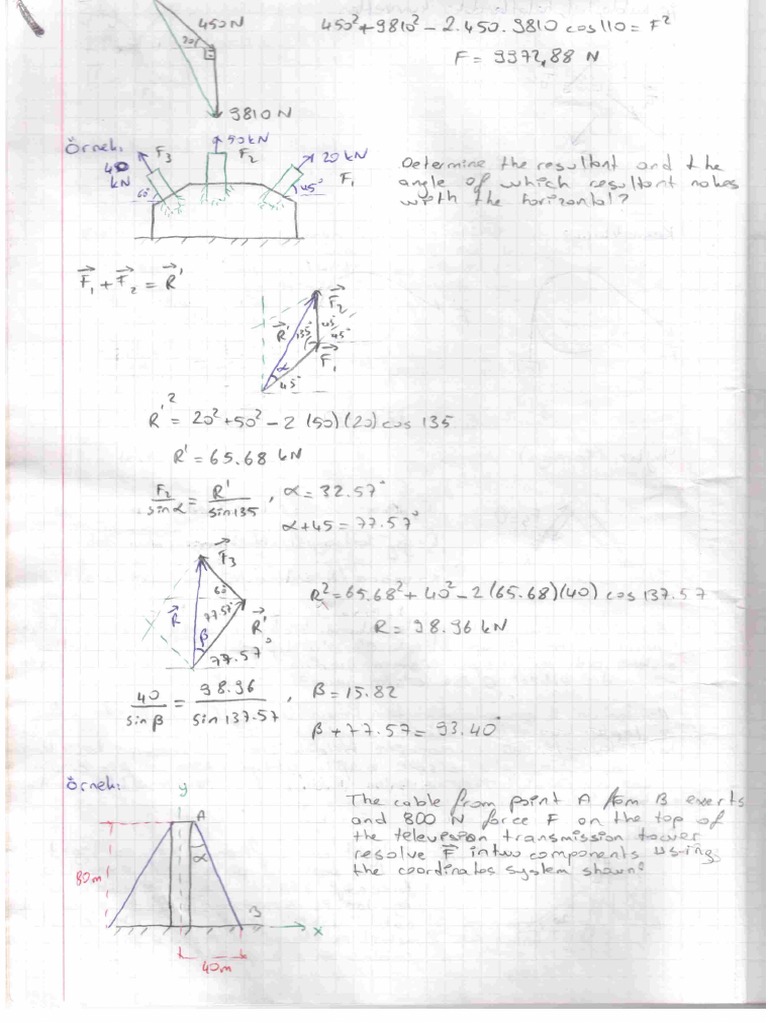 450 N
20°
450² + 9810² - 2.450.9810 cos110 = F²
F = 9972,88 N
9810 N
Örnek:
40 kN
F3
60°
50 kN
F2
20 kN
F1
45°
Determine the resultant and the
angle of which resultant makes
with the horizontal?
F1 + F2 = R'
F2
R'
135°
45°
45°
F1
α
45°
R'² = 20² + 50² - 2 (50) (20) cos 135
R' = 65.68 kN
F2/sinα = R'/sin135 , α = 32.57°
α + 45 = 77.57°
F3
60
77.57°
R
R'
β
77.57°
R² = 65.68² + 40² - 2 (65.68) (40) cos 137.57
R = 98.96 kN
40/sin β = 98.96/sin 137.57 , β = 15.82
β + 77.57 = 93.40°
Örnek:
y
A
α
80m
B
x
40m
The cable from point A from B exerts
and 800 N force F on the top of
the television transmission tower
resolve F in two components using
the coordinates system shown?